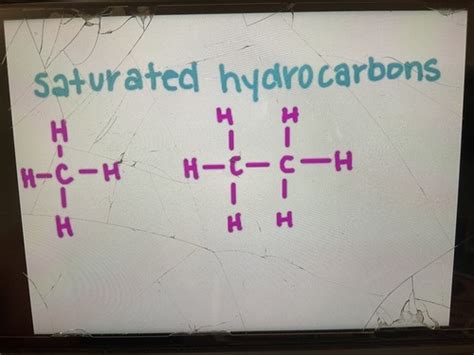 saturated hydrocarbons
H H H
H-C-H H-C-C-H
H H H